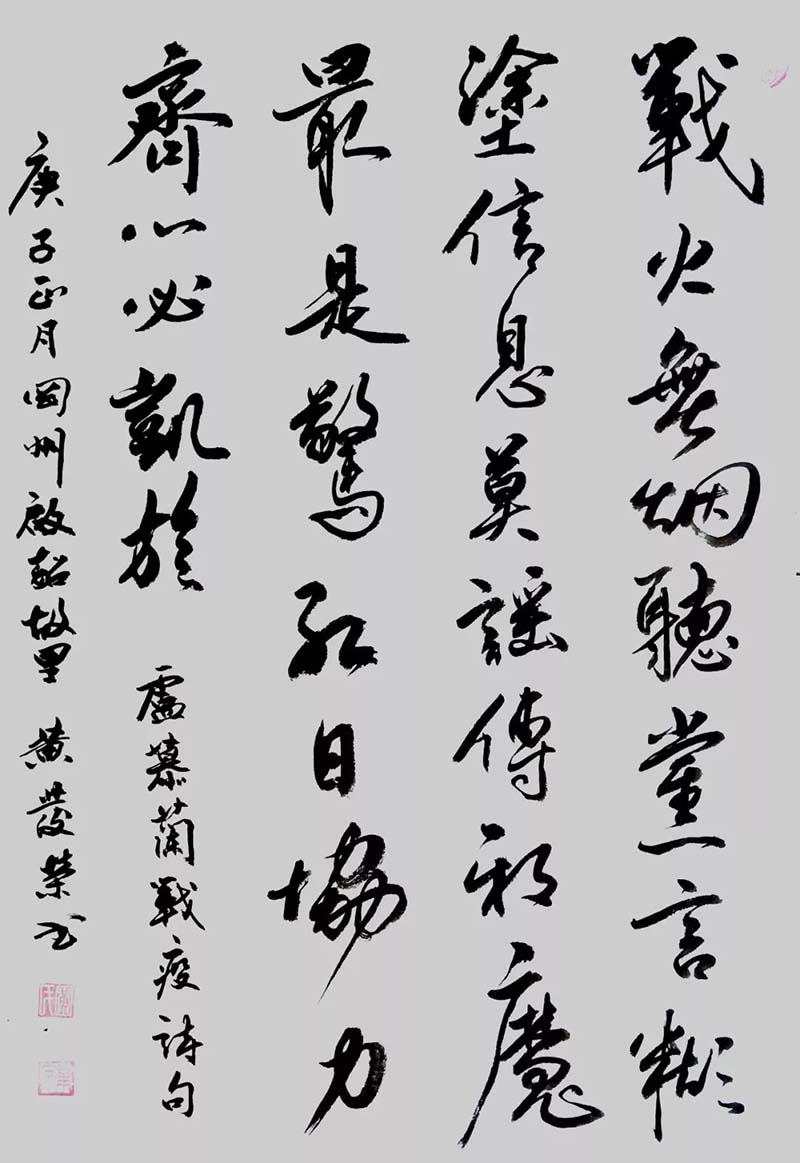 戰火無烟聽黨言糊
塗信息莫謡傳邪魔
最是驚紅日協力
齊心必凱旋 盧慕蘭戰疫詩句
庚子正月岡州啟超故里 黄發榮书